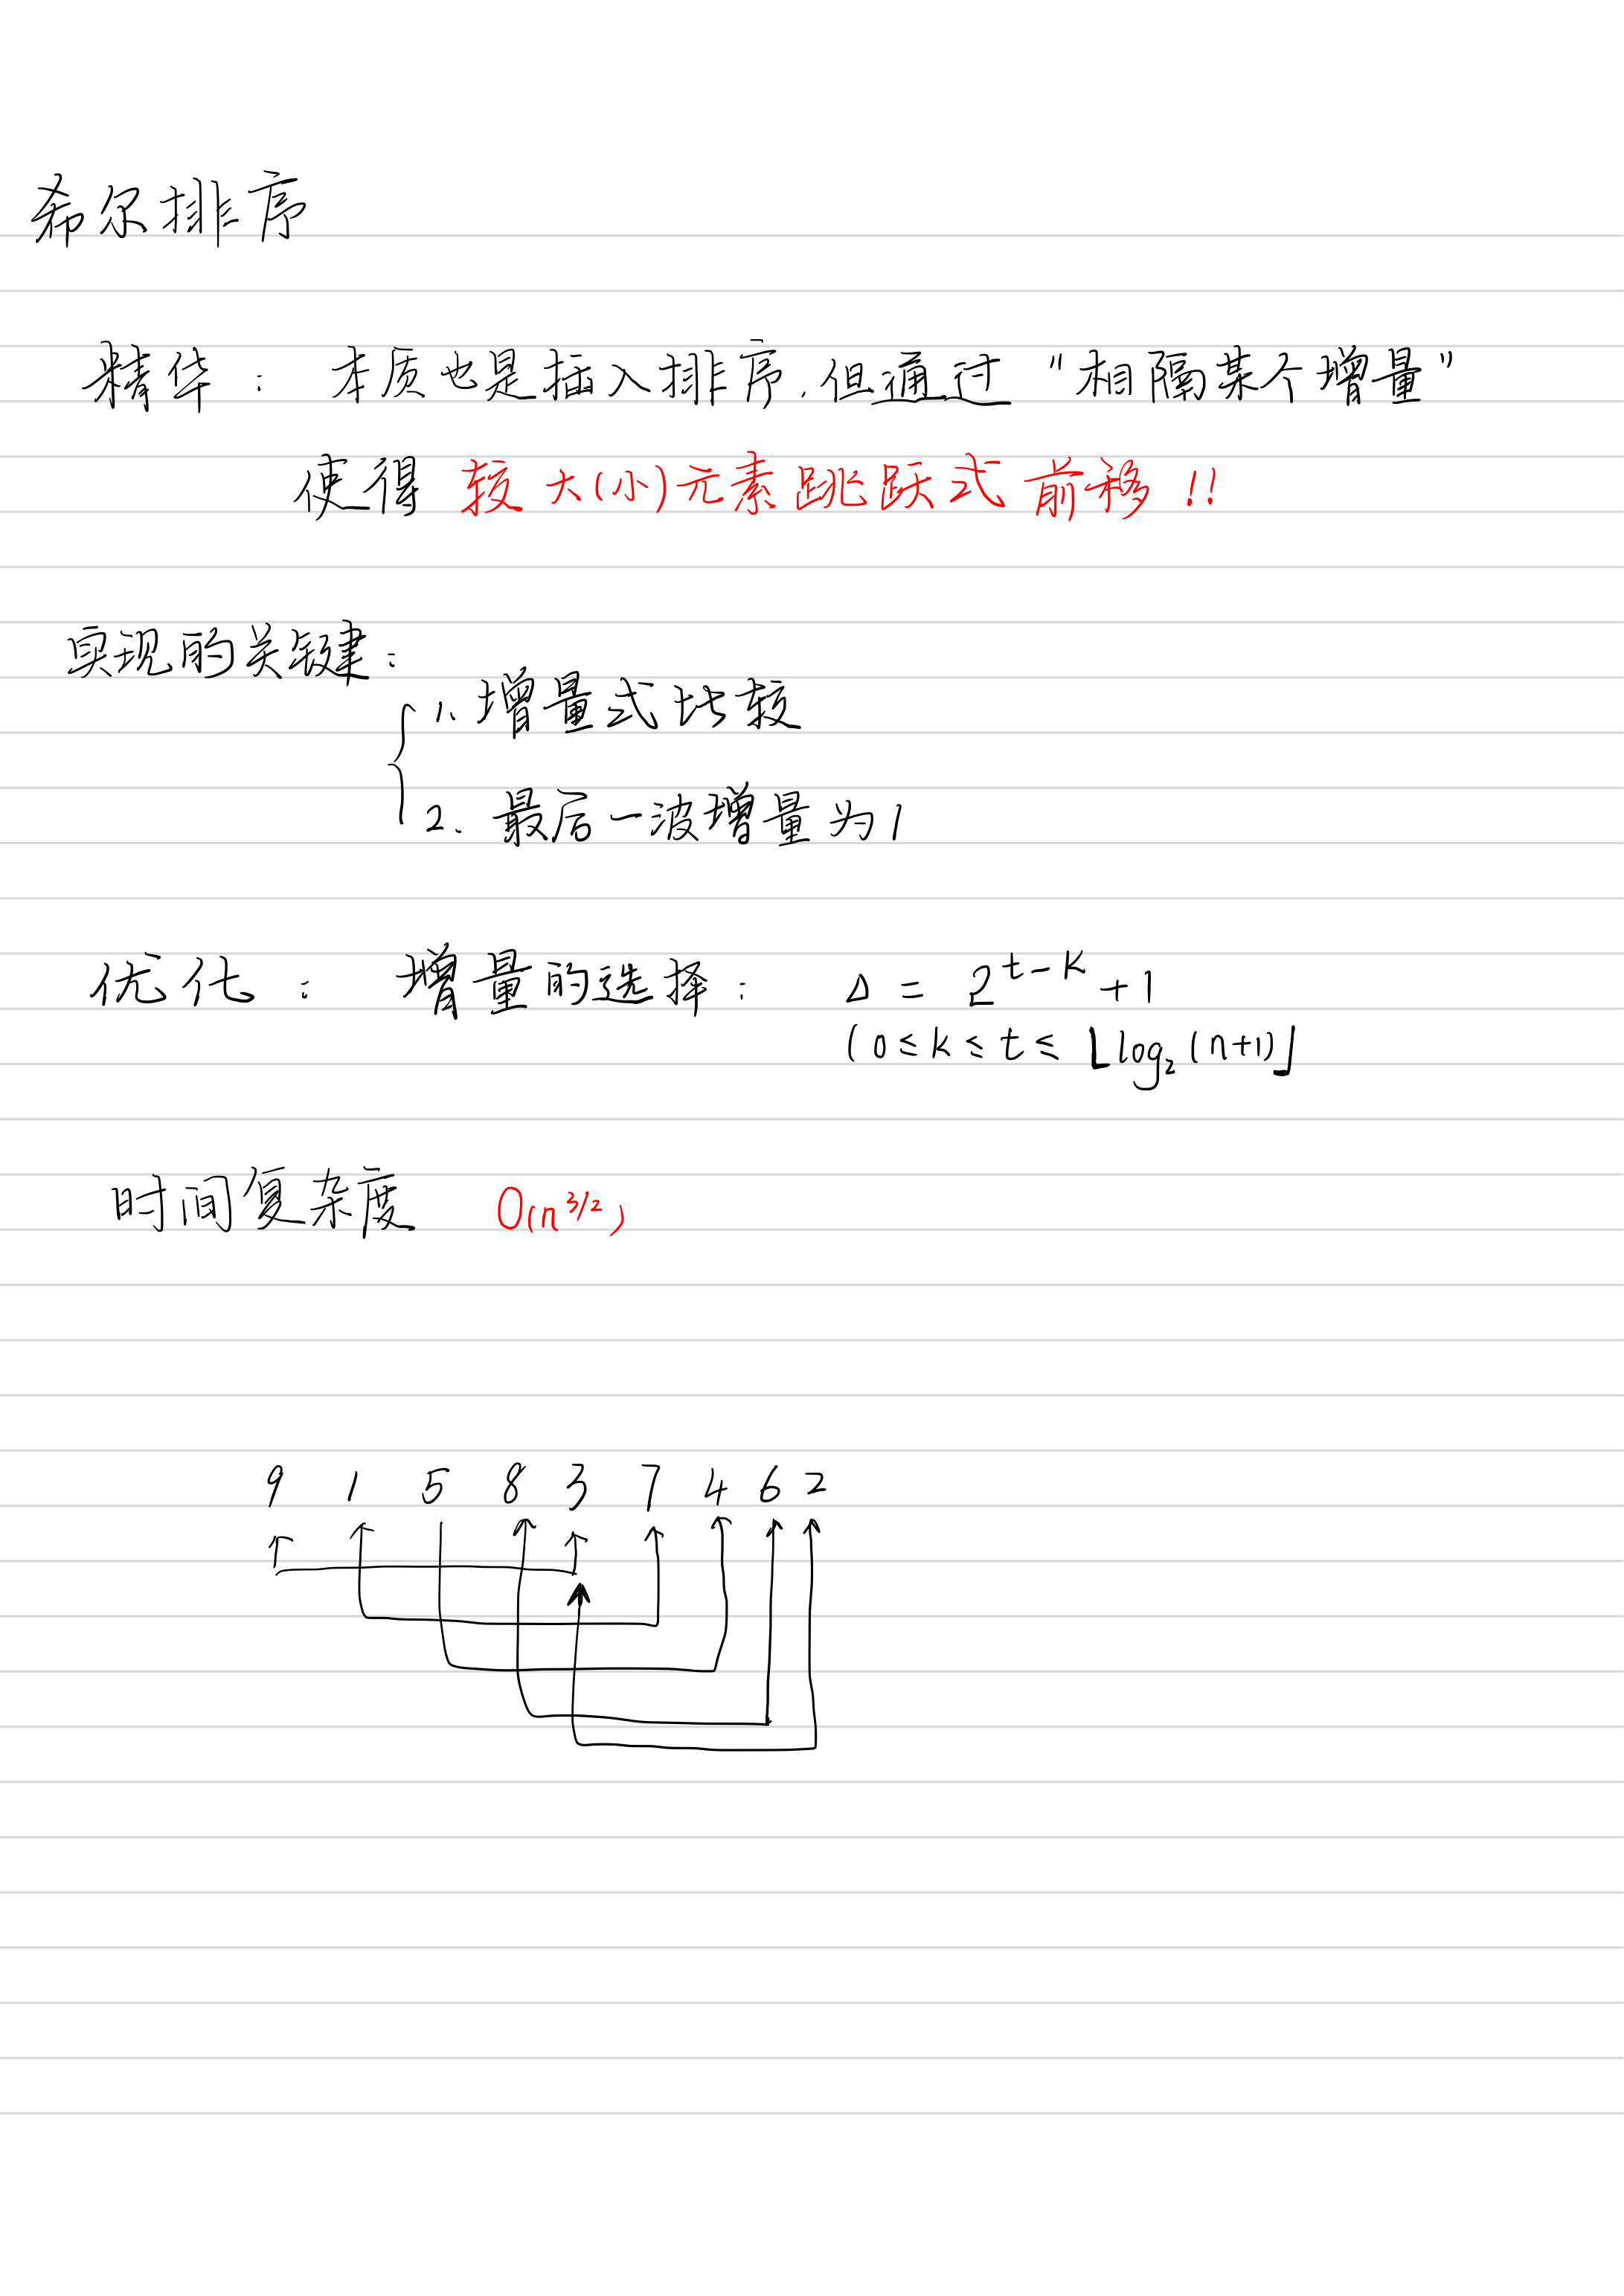 希尔排序
精华: 本质也是插入排序,但通过 "相隔某个增量"
使得 较大(小)元素跳跃式前移!!
实现的关键:
1. 增量式比较
2. 最后一波增量为1
优化: 增量的选择: Δ = 2^{t-k}+1
(0≤k≤t≤⌊log₂(n+1)⌋
时间复杂度 O(n^{3/2})
9 1 5 8 3 7 4 6 2